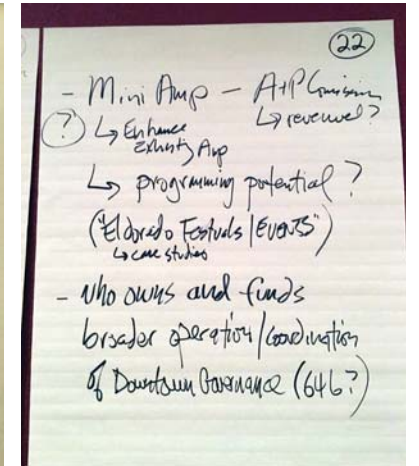 22
- Mini Amp - A+P Commission
? ↳ Enhance ↳ revenue?
Existing Amp
↳ programming potential?
("Eldorado Festivals/EVENTS")
↳ case studies
- who owns and funds
broader operation/coordination
of Downtown Governance (646?)